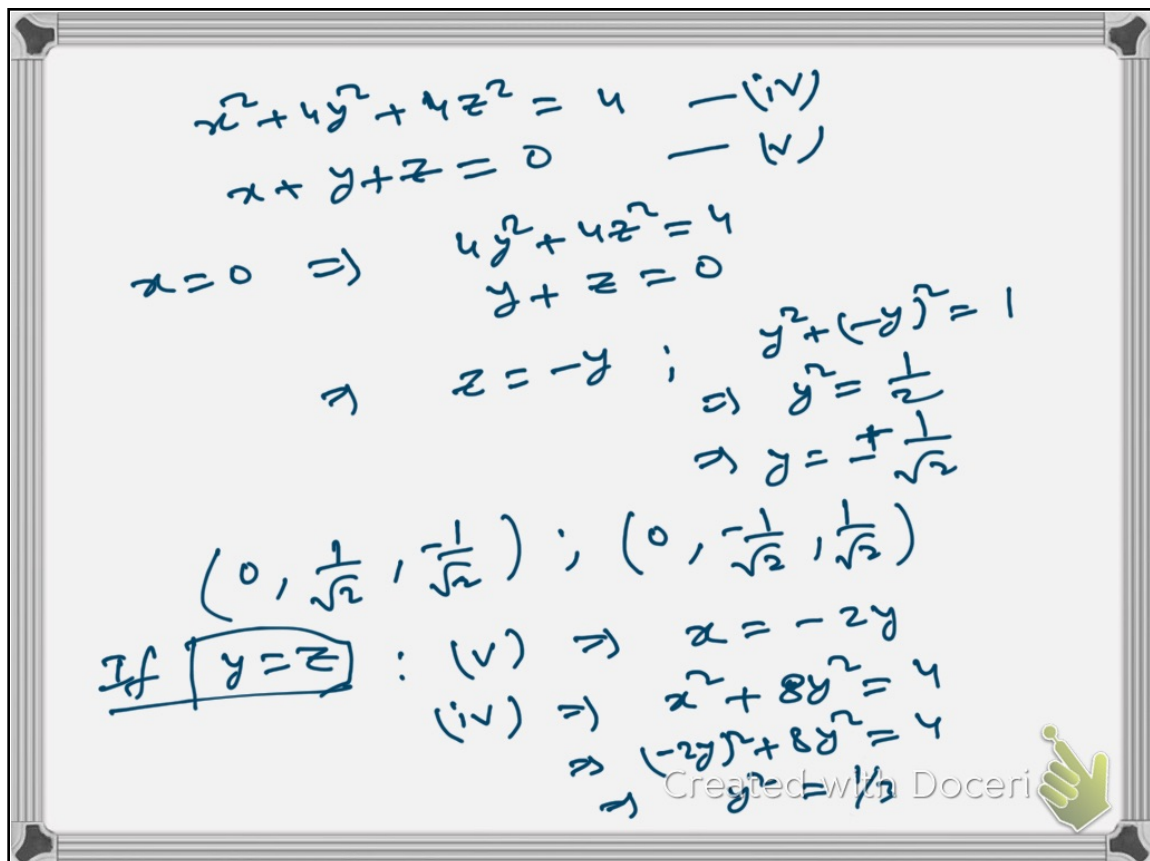 x² + 4y² + 4z² = 4 — (iv)
x + y + z = 0 — (v)
x = 0 ⇒ 4y² + 4z² = 4
y + z = 0
⇒ z = -y ; y² + (-y)² = 1
⇒ y² = 1/2
⇒ y = ± 1/√2
(0, 1/√2, -1/√2) ; (0, -1/√2, 1/√2)
If y = z : (v) ⇒ x = -2y
(iv) ⇒ x² + 8y² = 4
⇒ (-2y)² + 8y² = 4
⇒ y² = 1/3
Created with Doceri